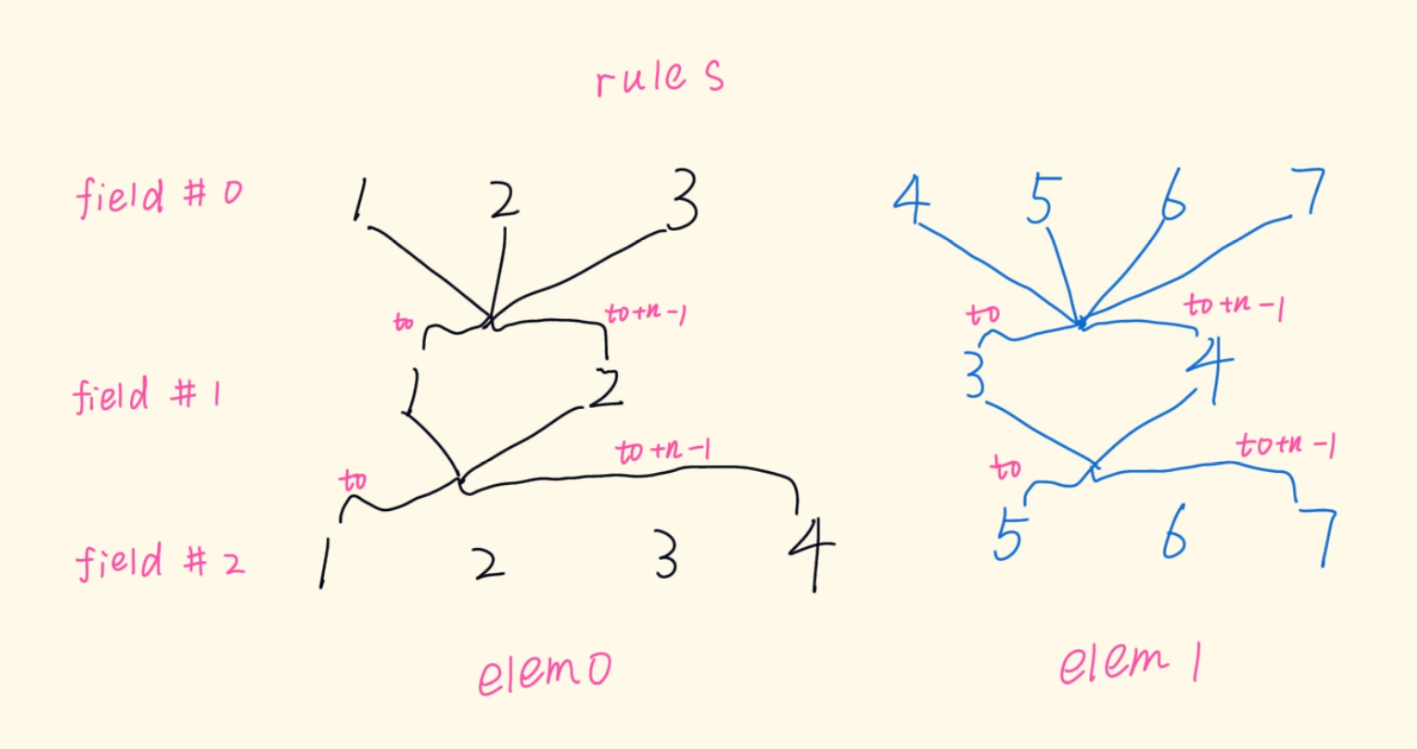 rules
field # 0 1 2 3 4 5 6 7
to to+n-1 to to+n-1
field # 1 1 2 3 4
to to+n-1 to to+n-1
field # 2 1 2 3 4 5 6 7
elem0 elem 1